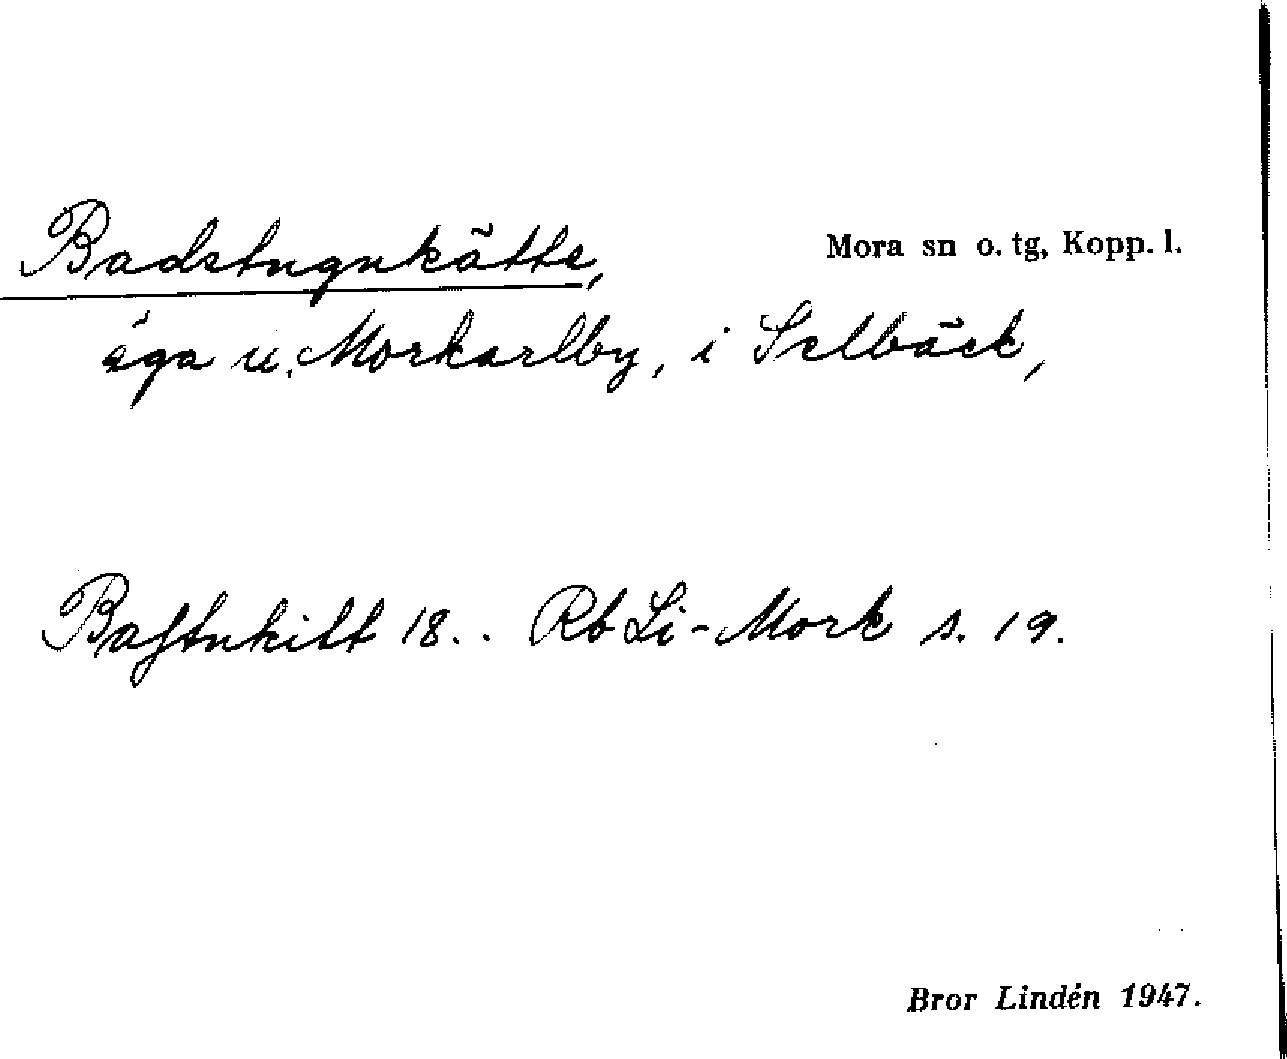 Badstugukätte,
Mora sn o. tg, Kopp. l.
äga u. Morkarlby, i Selbäck,
Bastukitt 18.. Rb Li-Mork s. 19.
Bror Lindén 1947.